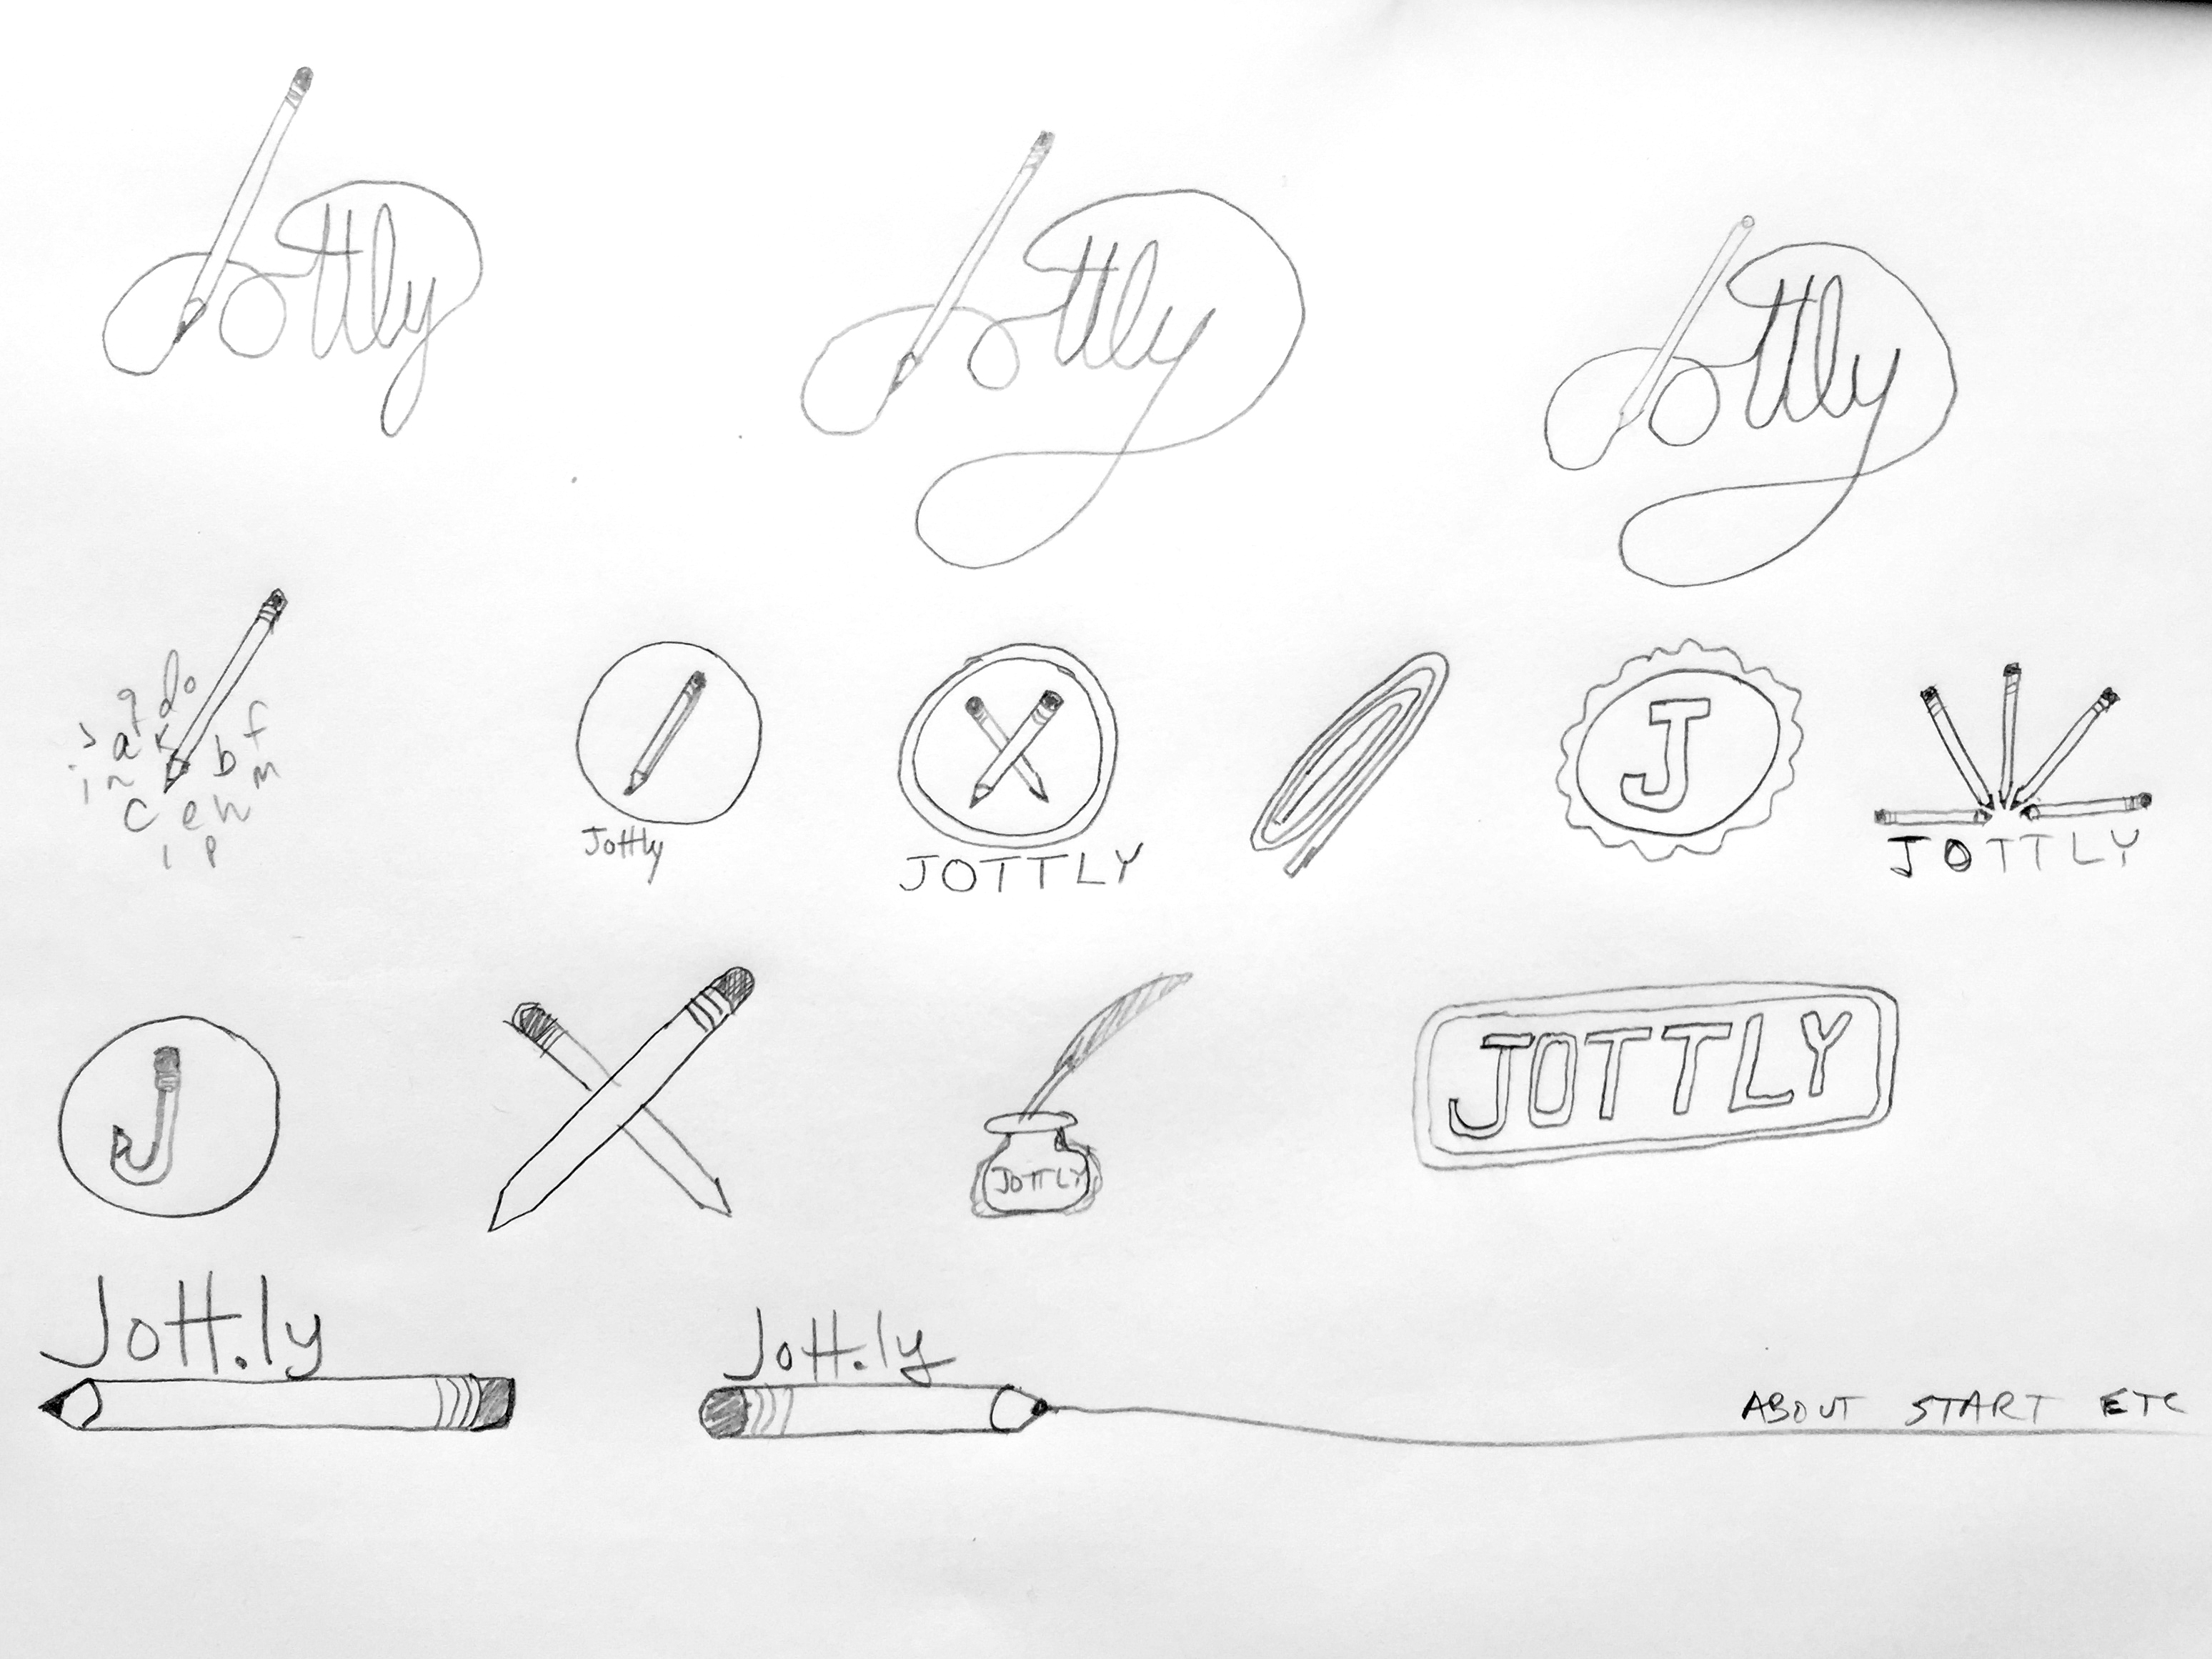 Jottly
Jottly
Jottly
g d o
s a k b f
i n m
c e w
i p
Jottly
JOTTLY
J
JOTTLY
J
JOTTLY
JOTTLY
Jott.ly
Jott.ly
ABOUT START ETC